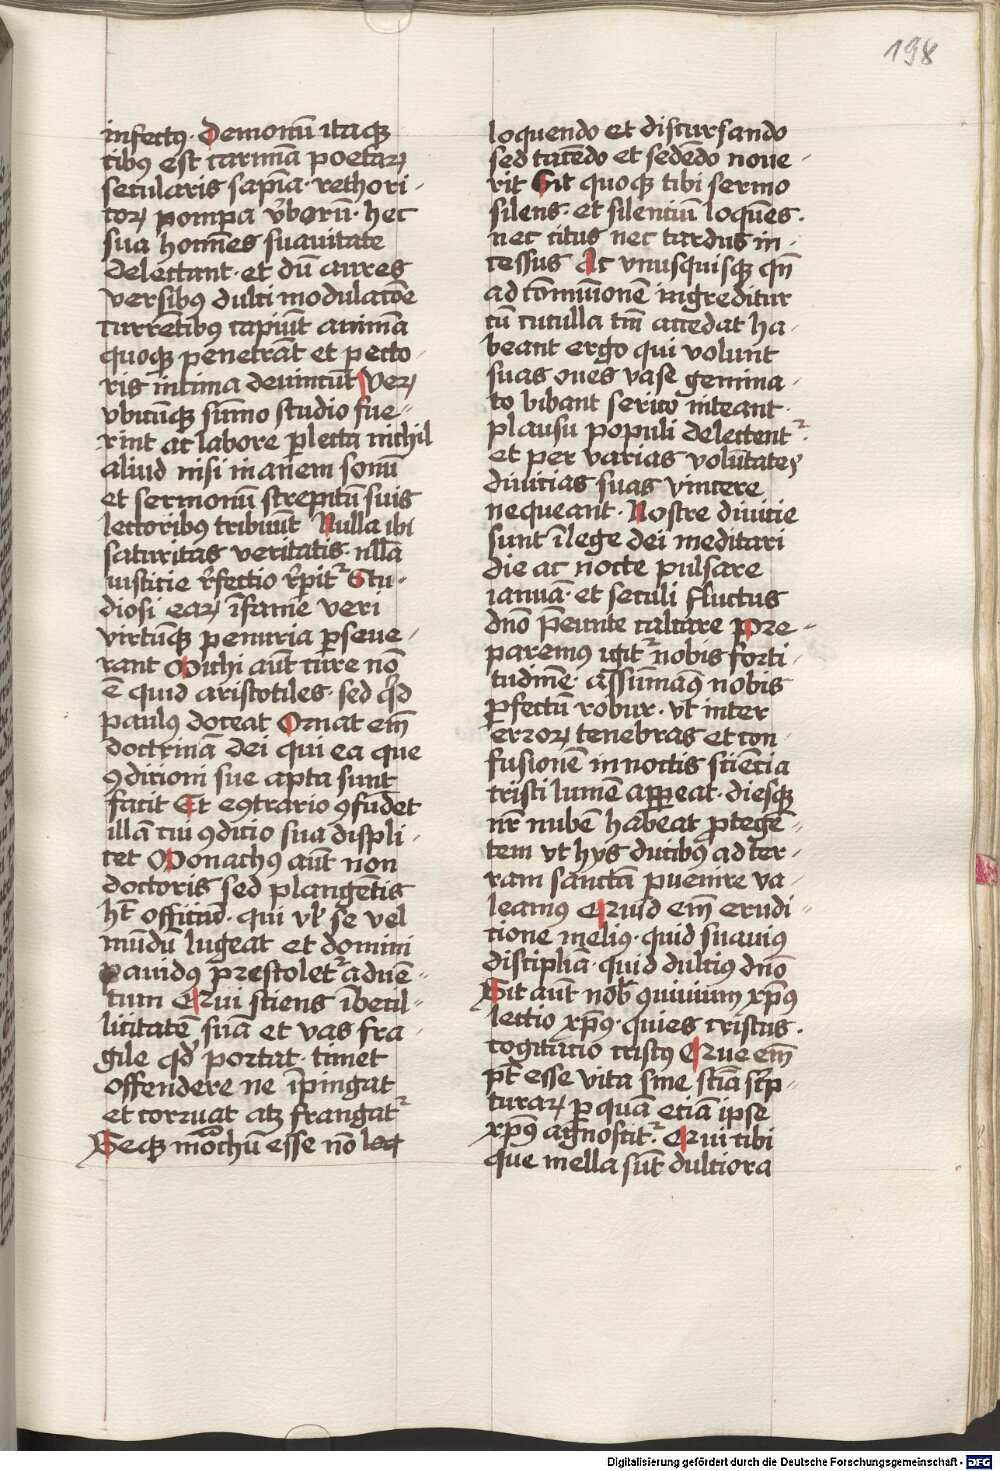 198
infectꝰ. Demonū itaqꝫ
cibꝰ est carmīa poetaꝝ
secularis sapīa. rethori-
coꝝ pompa v̓borū. hec
sua homīes suauitate
delectant. et dū aures
versibꝰ dulci modulacōe
currētibꝰ capiūt animā
quoqꝫ penetrāt et pecto-
ris intima deuincūt Veꝝ
vbicūqꝫ sūmo studio fue-
rint ac labore ꝑlecta nichil
aliud nisi inanem sonū
et sermonū strepitū suis
lectoribꝰ tribuūt Nulla ibi
saturitas veritatis. nlla
iusticie r̓fectio r̓pit᷑ Stu-
diosi eaꝝ ī fame veri
virtūqꝫ penuria ꝑseue-
rant Michi aūt cure nō
ē quid aristotiles. sed qd
paulꝰ doceat Ornat em̄
doctrinā dei qui ea que
ꝯdicioni sue apta sunt
facit Et eꝯtrario ꝯfūdet
illā cui ꝯdicio sua displi-
cet Monachꝰ aūt non
doctoris sed plangētis
hꝫ officiū. qui vl se vel
mūdū lugeat et domini
pauidꝰ p̄stolet᷑ aduē-
tum Qui sciens ībecil-
licitatē suā et vas fra-
gile qd portat. timet
offendere ne īpingat
et corruat atqꝫ frangat᷑
Seqꝫ mōchū esse nō loq̄
loquendo et discursando
sed tacēdo et sedēdo noue-
rit Sit quoqꝫ tibi sermo
silens. et silentiū loquēs.
nec citus nec tardus in-
cessus Ac vnusquisqꝫ qn̄
ad cōmūionē ingreditur
cū cuculla tm̄ accedat ha-
beant ergo qui volunt
suas oues vase gemma-
to bibant serico niteant.
plausu populi delectent᷑.
et per varias volūtates
diuicias suas vincere
nequeant. Nostre diuicie
sunt ī lege dei meditari
die ac nocte pulsare
ianuā. et seculi fluctus
dn̄o p̄eunte calcare Pre-
paremꝰ igit᷑ nobis forti-
tudinē. assumamꝰ nobis
ꝑfectū robur. vt inter
erroꝝ tenebras et con-
fusionē in noctis sciēcia
cristi lumē appeat. diesqꝫ
nr̄ nubē habeat ꝓtegē-
tem vt hys ducibꝰ ad ter-
ram sanctā ꝑuenire va-
leamus Quid em̄ erudi-
tione melius. quid suauiꝰ
disciplīa. quid dulciꝰ dn̄o
Sit aūt nob̄ ꝯuiuium xp̄ꝰ
lectio xp̄ꝰ. quies cristus.
cogitacio cristꝰ Que em̄
pt̄ esse vita sine sciā sc̓p-
turaꝝ ꝑ quā eciā ipse
xp̄ꝰ agnoscit᷑. Qui tibi
que mella sūt dulciora
Digitalisierung gefördert durch die Deutsche Forschungsgemeinschaft - DFG